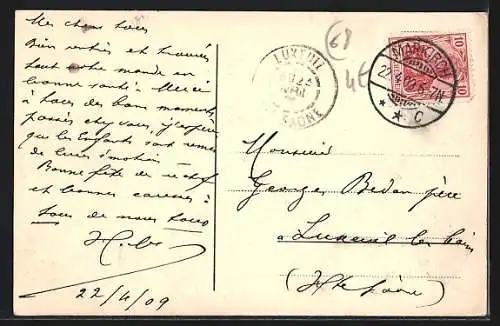 Mes chers tous
Bien rentrés et trouvés
tout notre monde en
bonne santé. Merci
à tous des bons moments
passés chez vous, j'espère
que les Enfants sont remis
de leurs émotions
Bonne fête de
et bonnes caresses à
tous de nous tous
22/4/09
LUXEUIL
SAONE
68
4€
MARKIRCH
22.4.
* * C
10 10
Monsieur
Georges Bedan père
à Luxeuil les bains
(Hte Saône)